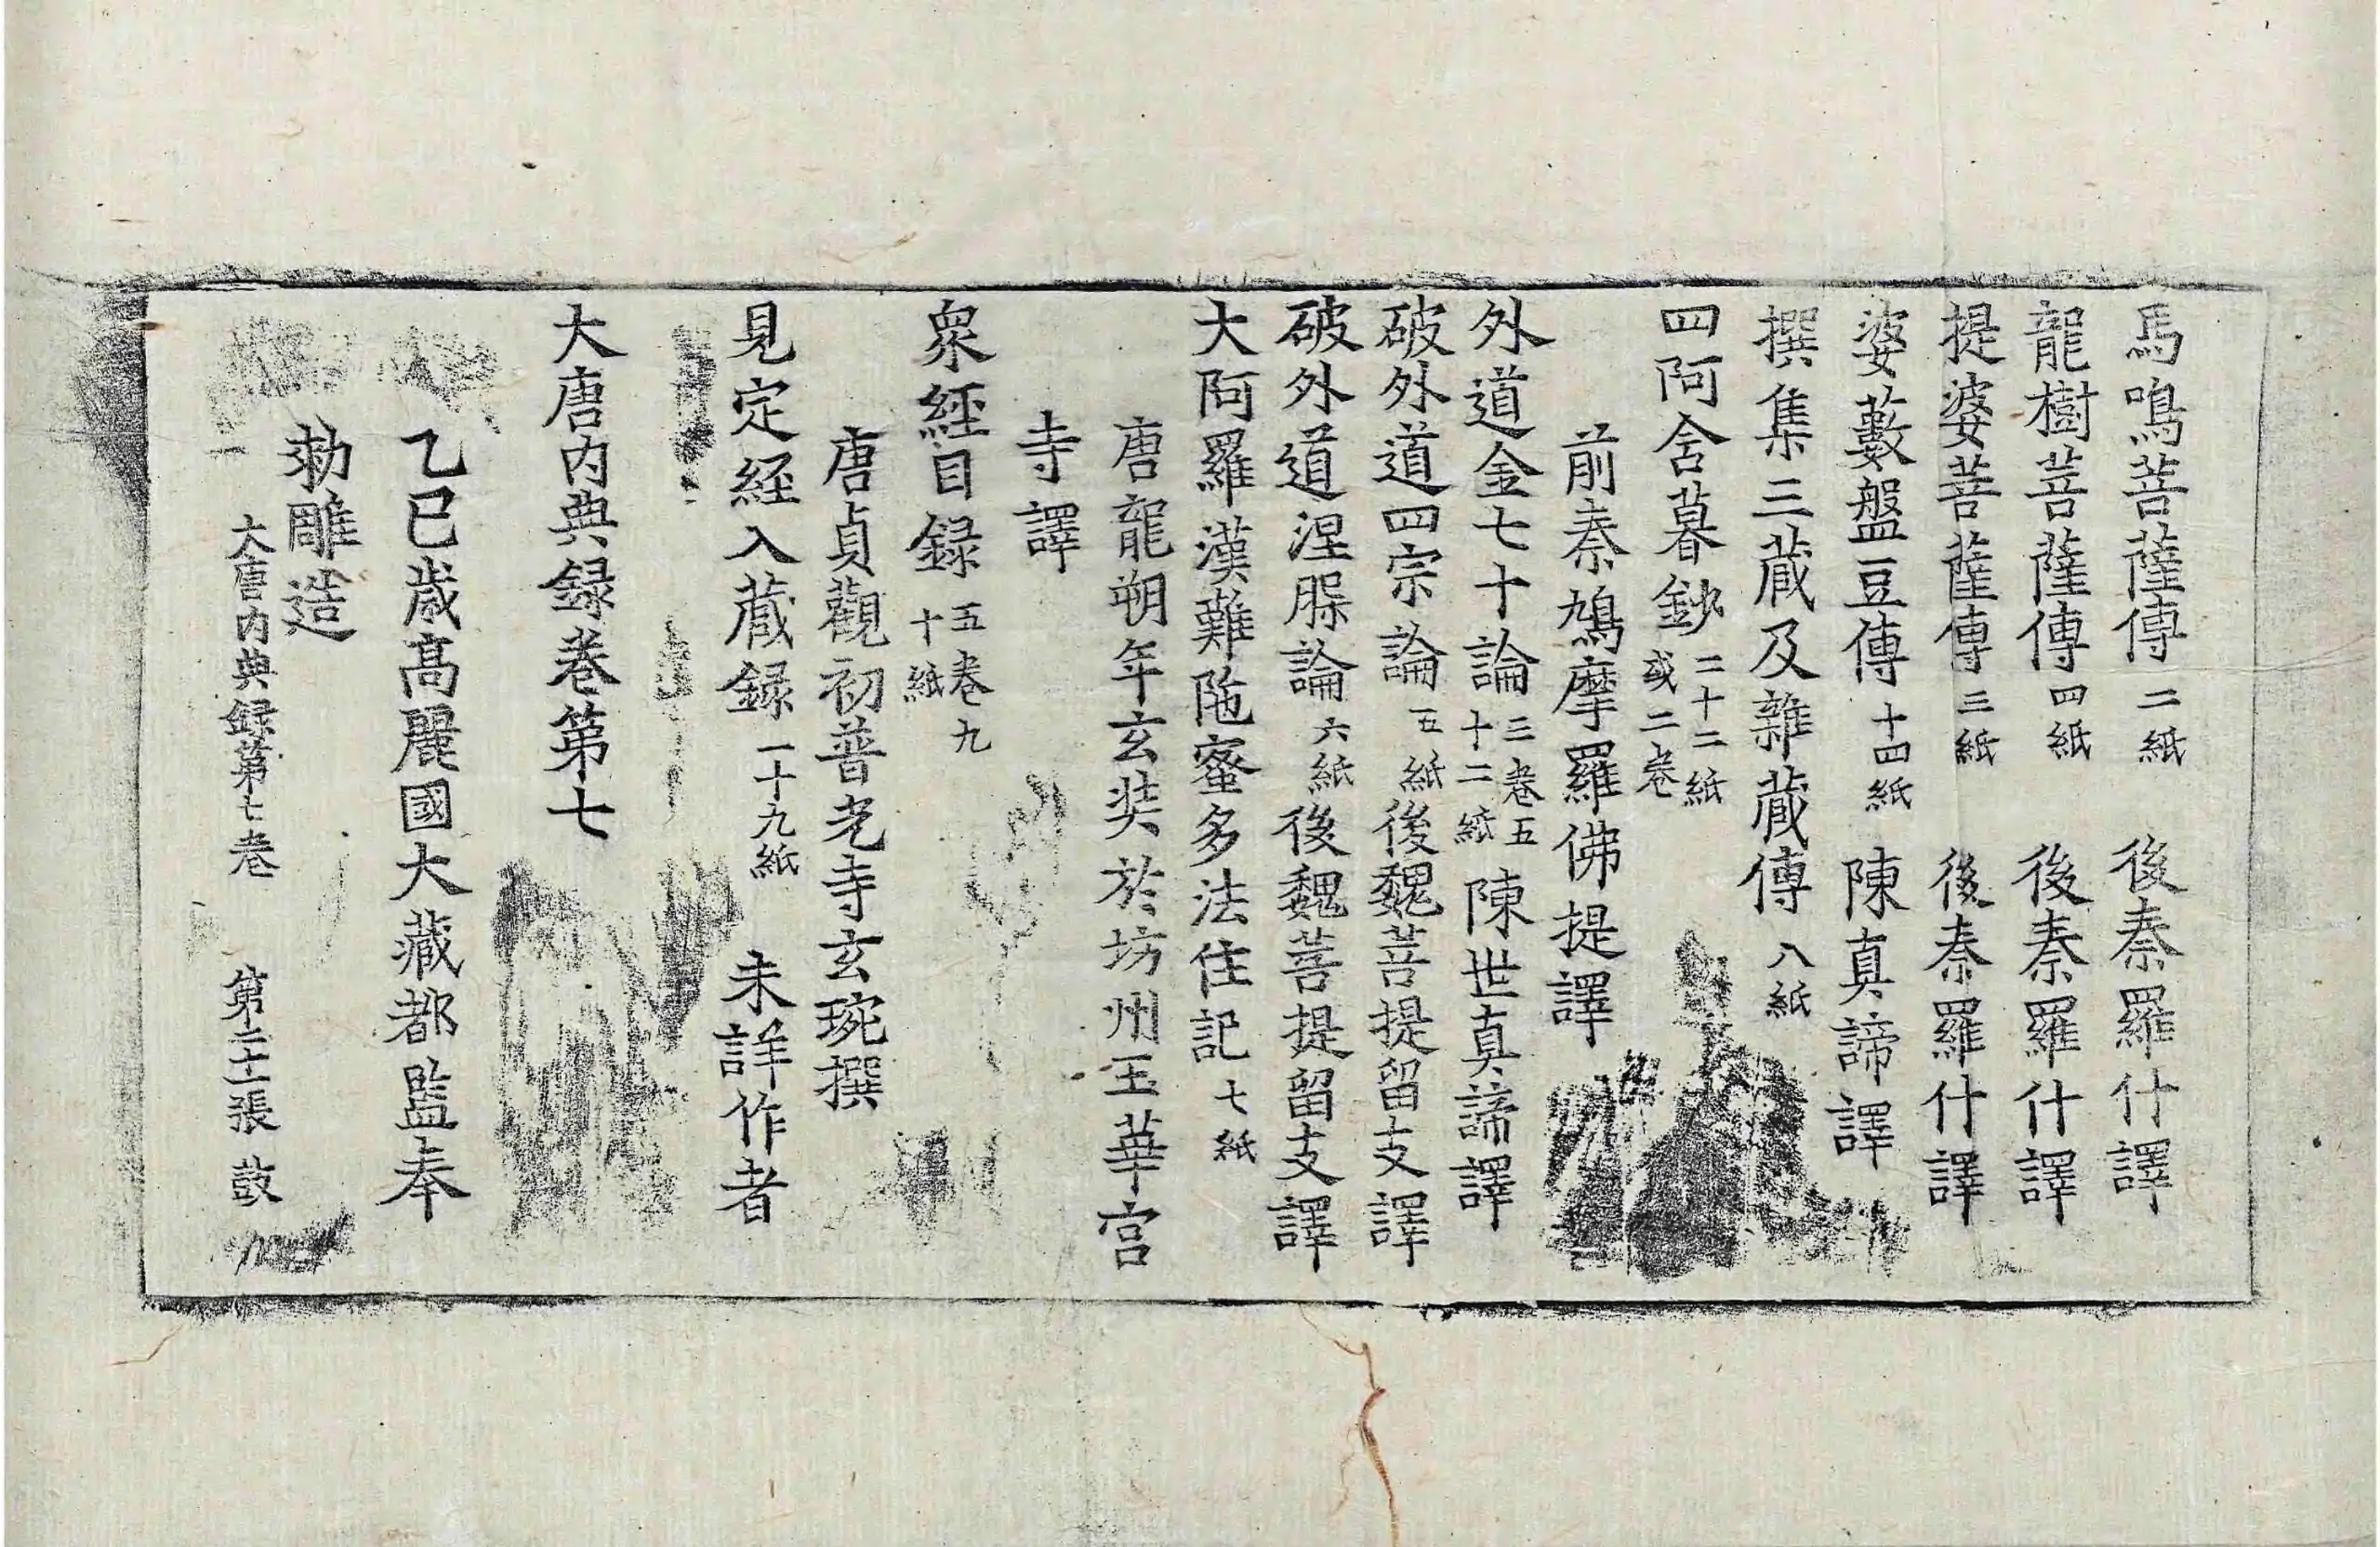 馬鳴菩薩傳 二紙 後秦羅什譯
龍樹菩薩傳 四紙 後秦羅什譯
提婆菩薩傳 三紙 後秦羅什譯
婆藪盤豆傳 十四紙 陳真諦譯
撰集三藏及雜藏傳 八紙
四阿含暮鈔 二十二紙 或二卷
前秦鳩摩羅佛提譯
外道金七十論 三卷五十二紙 陳世真諦譯
破外道四宗論 五紙 後魏菩提留支譯
破外道涅槃論 六紙 後魏菩提留支譯
大阿羅漢難陁蜜多法住記 七紙
唐龍朔年玄奘於坊州玉華宮
寺譯
衆經目録 五卷九十紙
唐貞觀初普光寺玄琬撰
見定經入藏録 一十九紙 未詳作者
大唐內典録卷第七
乙巳歲高麗國大藏都監奉
勑雕造
大唐內典録第七卷 第二十一張 鼓